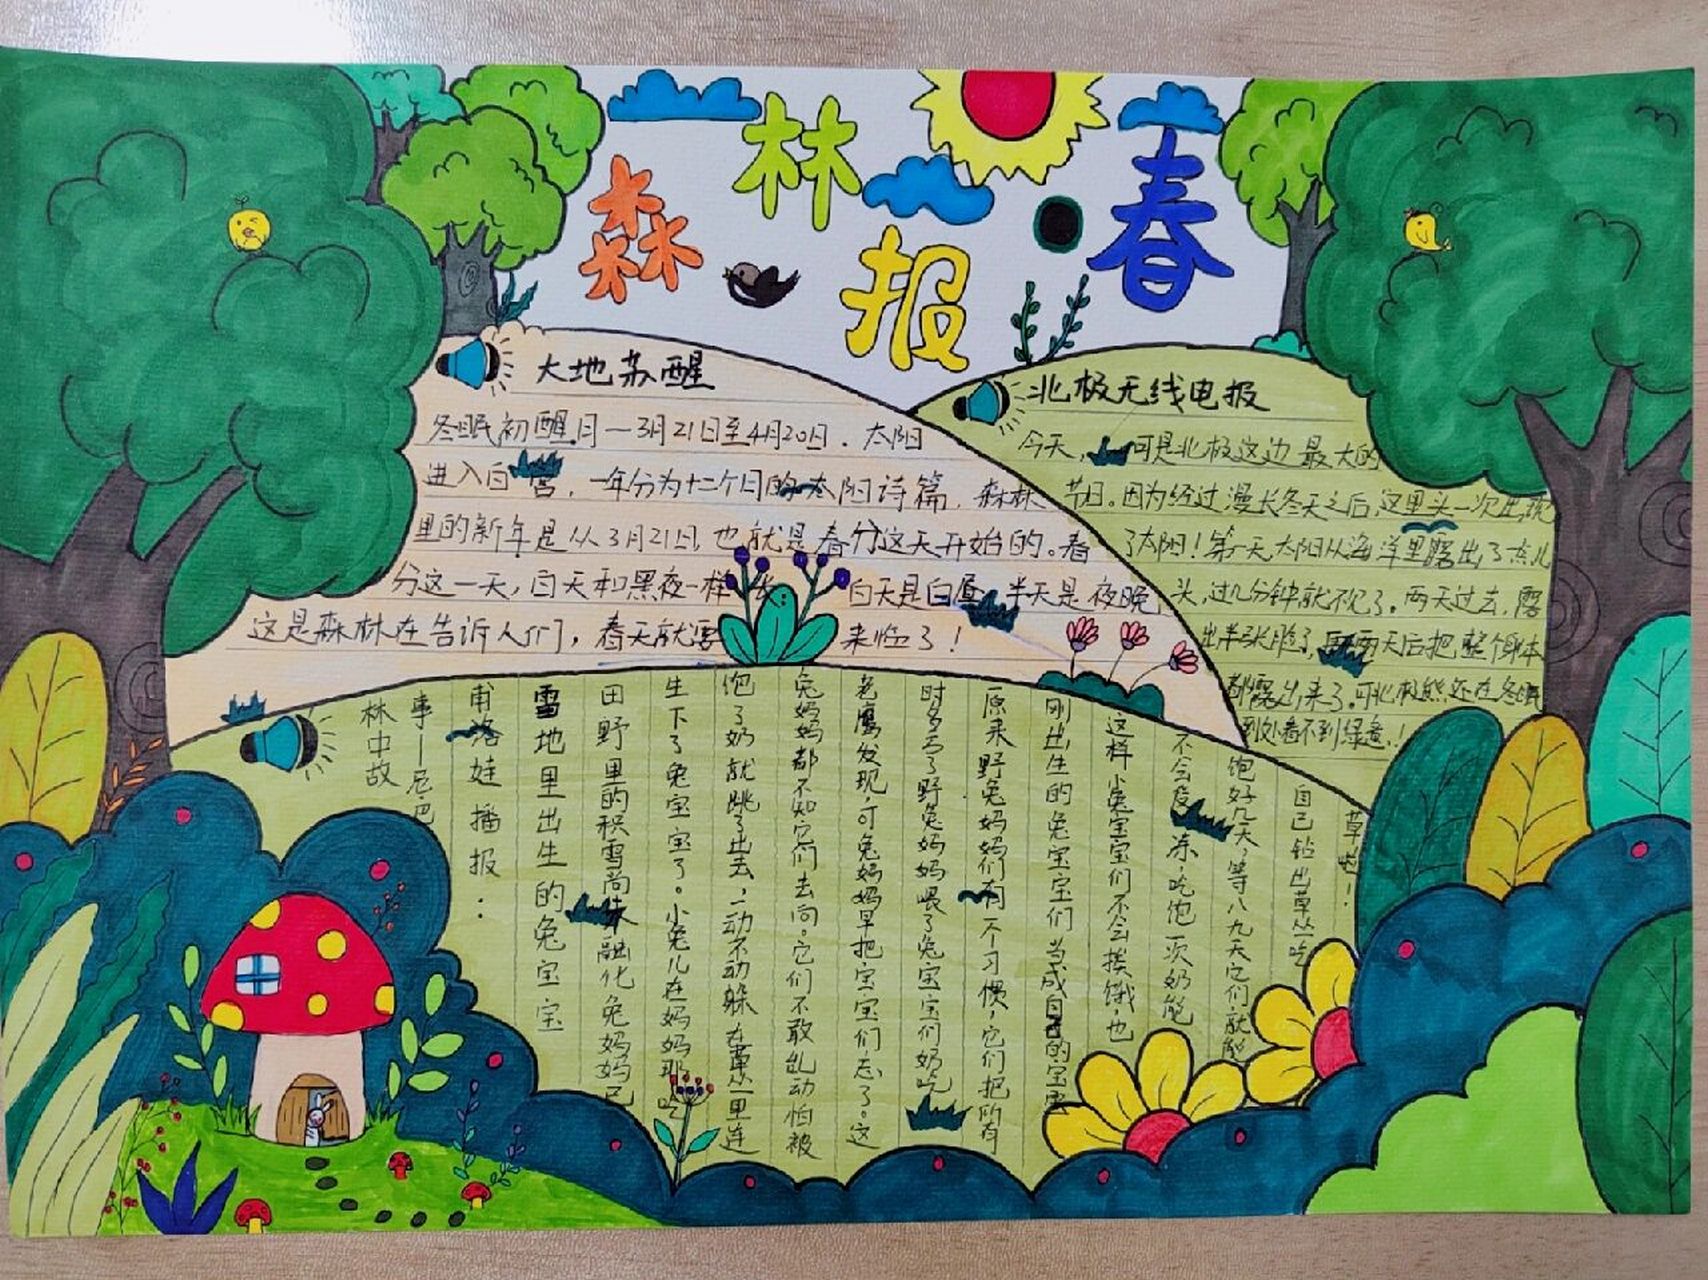 森林报 春
大地苏醒
冬眠初醒月—3月21日至4月20日.太阳
进入白 宫,一年分为十二个日的太阳诗篇.森林
里的新年是从3月21日,也就是春分这天开始的。春
分这一天,白天和黑夜一样 白天是白昼,半天是夜晚,
这是森林在告诉人们,春天就要 来临了!
北极无线电报
今天, 可是北极这边最大的
节日。因为经过漫长冬天之后,这里头一次出现
了太阳!第一天太阳从海洋里露出了点儿
头,过几分钟就不见了。两天过去,露
出半张脸了, 两天后把整个身体
都露出来了。可北极熊还在冬眠
到处看不到绿意.!
林中故
事—尼·巴
甫洛娃播报:
雪地里出生的兔宝宝
田野里的积雪尚 融化兔妈妈已
生下了兔宝宝了。小兔儿在妈妈那吃
饱了奶就跳了出去,一动不动躲在 里连
兔妈妈都不知它们去向。它们不敢乱动怕被
老鹰发现,可兔妈妈早把宝宝们忘了。这
时多亏了野兔妈妈喂了兔宝宝们奶吃
原来野兔妈妈们有一个习惯,它们把所有
刚出生的兔宝宝们当成自己的宝宝
这样小兔宝宝们不会挨饿,也
不会受 冻,吃饱一次奶能
饱好几天,等八九天它们就能
自己钻出草丛吃
草啦!